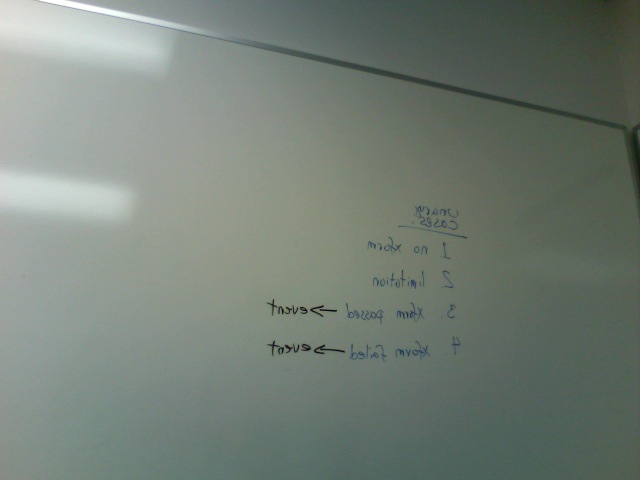 unary
cases:
1 no xform
2 limitation
3. xfrm passed → event
4. xform failed → event